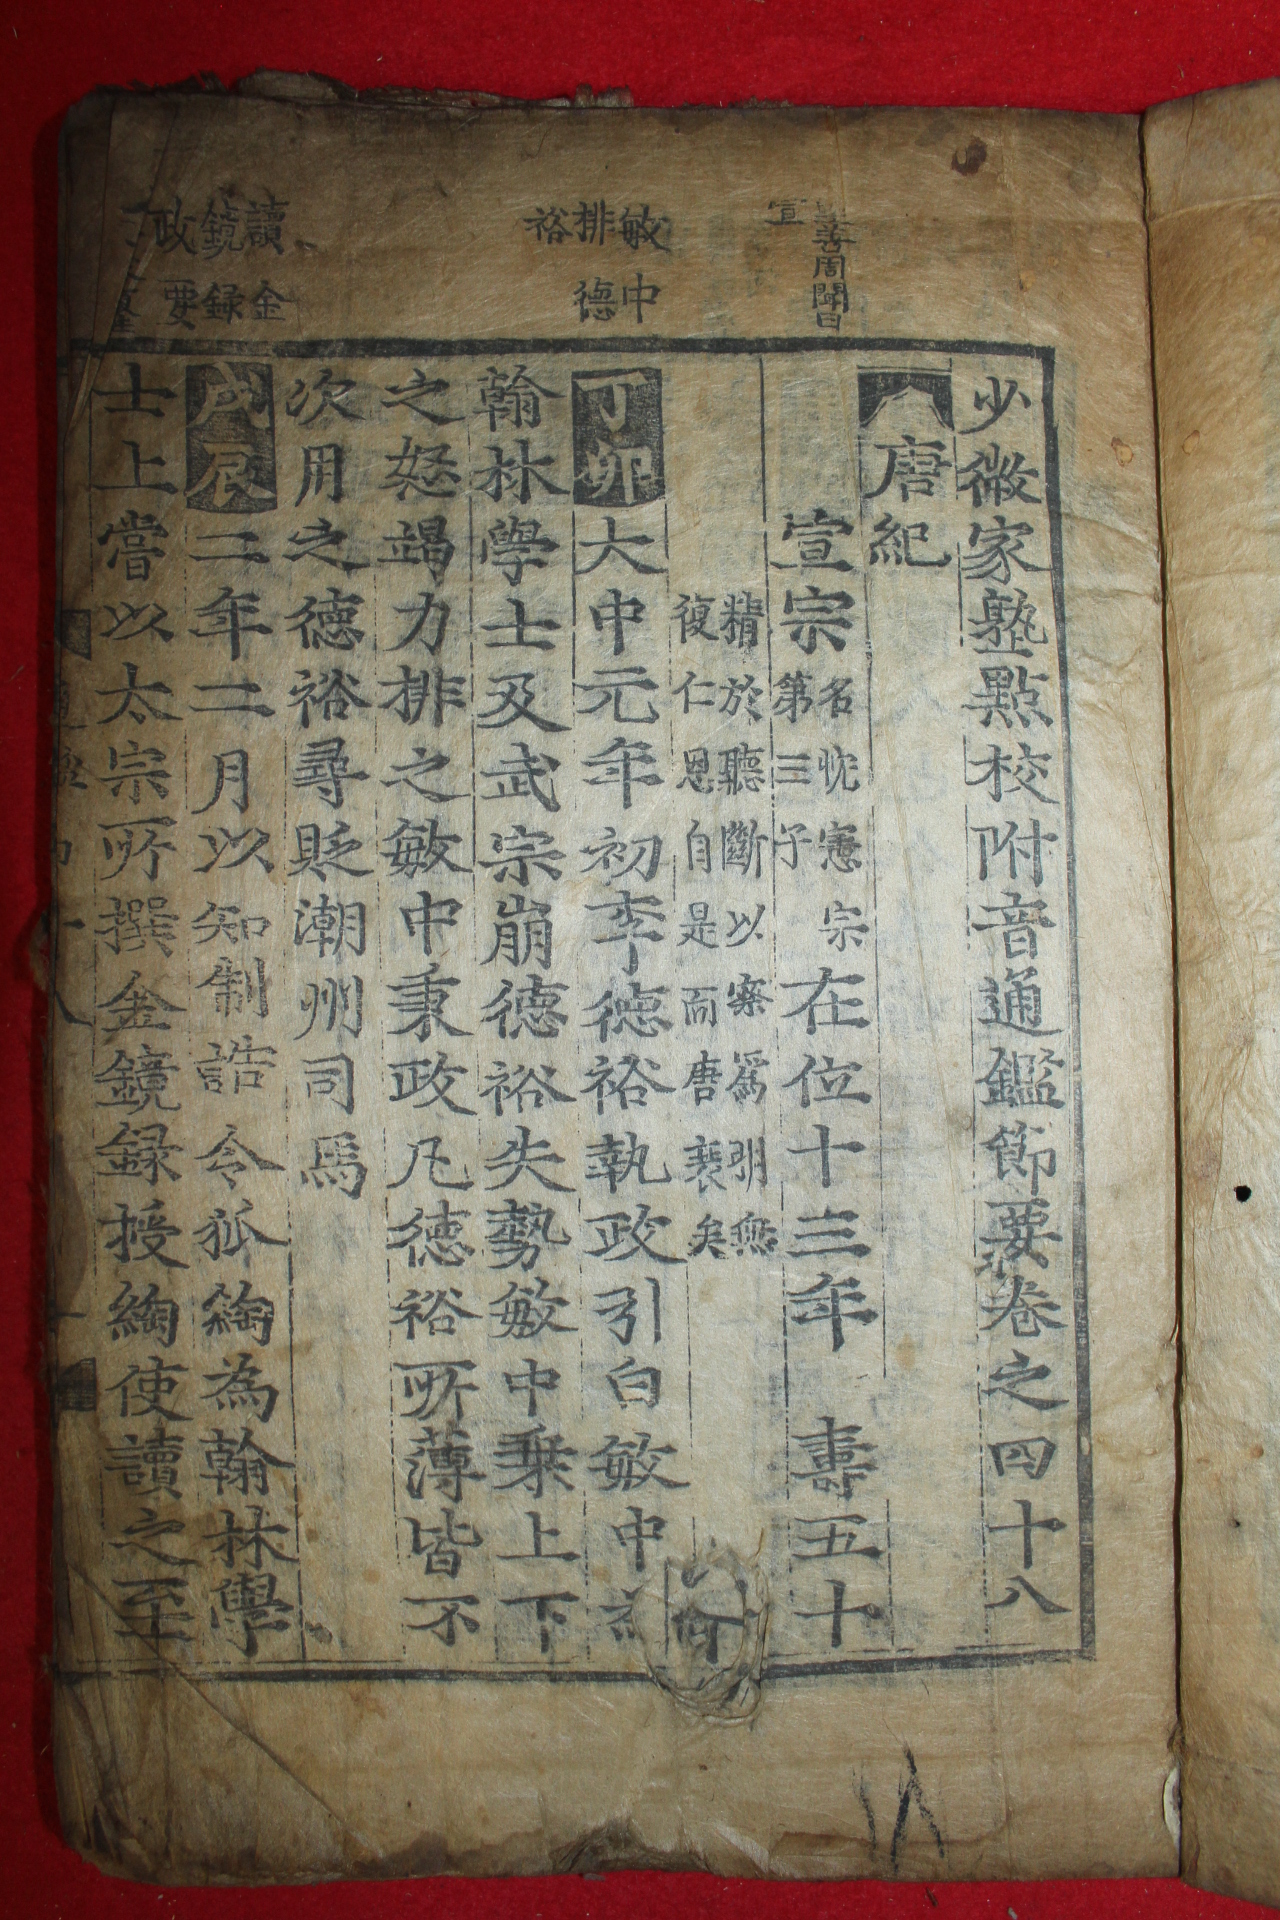 少微家塾點校附音通鑑節要卷之四十八
唐紀
宣宗名忱憲宗第三子在位十三年 壽五十
精於聽斷以察爲明無
復仁恩自是而唐衰矣
丁卯大中元年初李德裕執政引白敏中
翰林學士及武宗崩德裕失勢敏中乗上下
之怒竭力排之敏中秉政凡德裕所薄皆不
次用之德裕尋貶潮州司馬
戊辰二年二月以知制誥令狐綯為翰林學
士上嘗以太宗所撰金鏡録授綯使讀之至
善周聞曰
宣
敏中
排德
裕
讀金
鏡録
政要